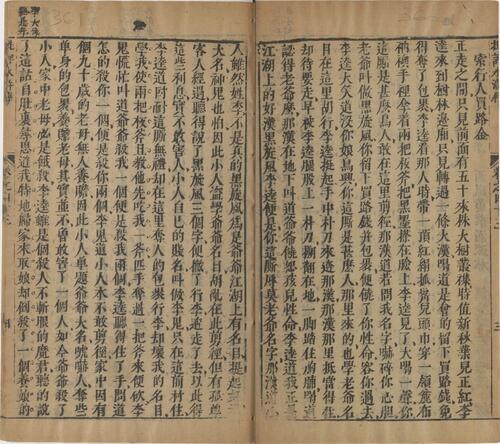 索行人買路金
正走之間只見前面有五十來株大樹叢襍時值新秋葉兒正紅李
逵來到樹林邊廂只見轉過一條大漢喝道是會的留下買路錢免
得奪了包果李逵看那人時帶一頂紅絹抓䯼兒頭巾穿一領麄布
衲襖手裡拿着兩把板斧把黑墨搽在臉上李逵見了大喝一聲你
這廝是甚麼鳥人敢在這里剪徑那漢道若問我名字嚇碎你心胆
老爺叫做黑旋風你留下買路錢并包裹便饒了你性命容你過去
李逵大笑道沒你娘鳥興你這廝是甚麼人那里來的也學老爺名
目在這里胡行李逵挺起手中朴刀來逩那漢那漢那里抵當得住
却待要走早被李逵腿股上一朴刀搠翻在地一脚踏住胸脯喝道
認得老爺麼那漢在地下叫道爺爺饒恕孩兒性命李逵道我正是
江湖上的好漢黑旋風李逵便是你這廝辱莫老爺名字那漢道小
人雖然姓李不是真的黑旋風為是爺爺江湖上有名目提起爺爺
大名神鬼也怕因此小人盜學爺爺名目胡亂在此剪徑但有孤單
客人經過聽得說了黑旋風三個字便撇了行李逩走了去以此得
這些利息實不敢害人小人自己的賤名叫做李鬼只在這前村住
李逵道叵耐這廝無禮却在這里奪人的包裹行李却壞我的名目
學我使兩把板斧且教他先吃我一斧匹手奪過一把斧來便砍李
鬼慌忙叫道爺爺殺我一個便是殺我兩個李逵聽得住了手問道
怎的殺你一個便是殺你兩個李鬼道小人本不敢剪徑家中因有
個九十歲的老母無人養贍因此小人單題爺爺大名唬嚇人奪些
單身的包裹養贍老母其實並不曾敢害了一個人如今爺爺殺了
小人家中老母必是餓殺李逵雖是個殺人不斬眼的魔君聽的說
了這話自肚裏尋思道我特地歸家來取娘却倒殺了一個養娘的